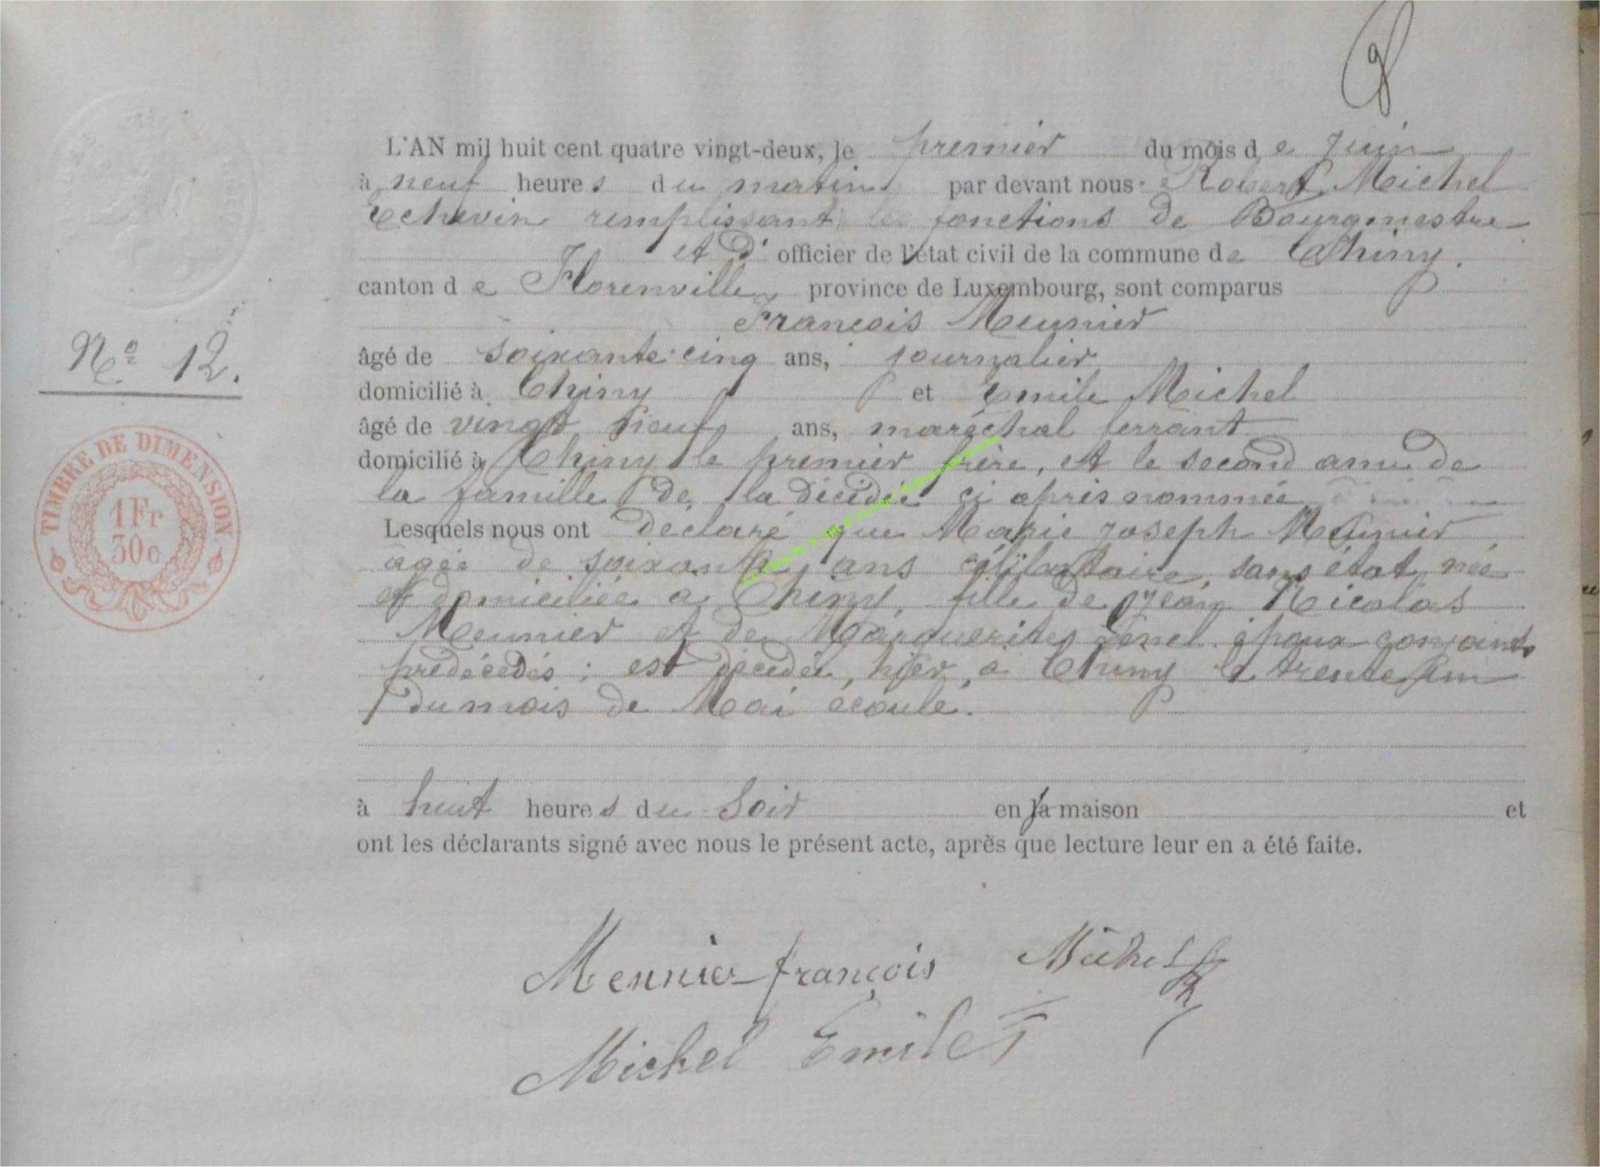 L'AN mil huit cent quatre vingt-deux, le premier du mois de Juin
à neuf heures du matin par devant nous Robert Michel
Echevin remplissant les fonctions de Bourgmestre
et d' officier de l'état civil de la commune de Chiny.
canton de Florenville, province de Luxembourg, sont comparus
François Meunier
âgé de soixante cinq ans, journalier
domicilié à Chiny et Emile Michel
âgé de vingt neuf ans, maréchal ferrant
domicilié à Chiny le premier frère, et le second ami de
la famille de la décédée ci après nommée
Lesquels nous ont déclaré que Marie Joseph Meunier
agée de soixante ans célibataire, sans état, née
et domiciliée à Chiny, fille de Jean Nicolas
Meunier et de Marguerite époux conjoints
prédécédés ; est décédée, hier, a Chiny le trente un
du mois de Mai écoulé.
à huit heures du Soir en la maison et
ont les déclarants signé avec nous le présent acte, après que lecture leur en a été faite.
No 12.
TIMBRE DE DIMENSION
1 Fr
30 c
Meunier françois Michel R
Michel Emile